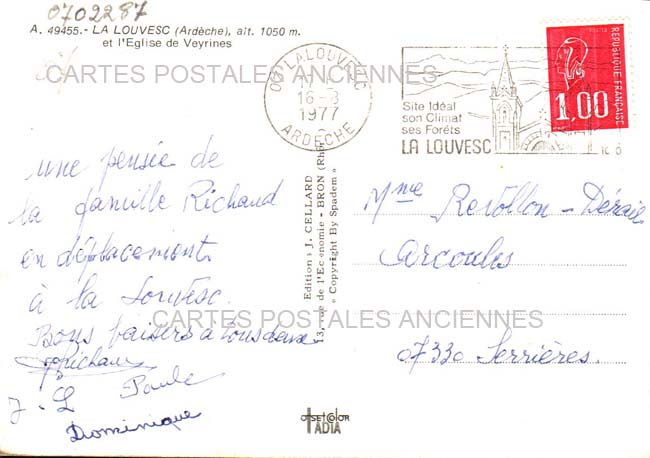 0702287
A. 49455.- LA LOUVESC (Ardèche), alt. 1050 m.
et l'Eglise de Veyrines
CARTES POSTALES ANCIENNES
07 LALOUVESC
16-8
1977
ARDECHE
Site Idéal
son Climat
ses Forêts
LA LOUVESC
REPUBLIQUE FRANÇAISE
1,00
une pensée de
la famille Richaud
en déplacement
à la Louvesc.
Bons baisers à tous deux
GRichaud
J. L Paule
Dominique
Edition J. CELLARD
13, rue de l'Economie - BRON (Rhône)
« Copyright By Spadem »
Mme Revollon - Dérail
Arcoules
07330 Serrières.
CARTES POSTALES ANCIENNES
OFFSET COLOR
IADIA